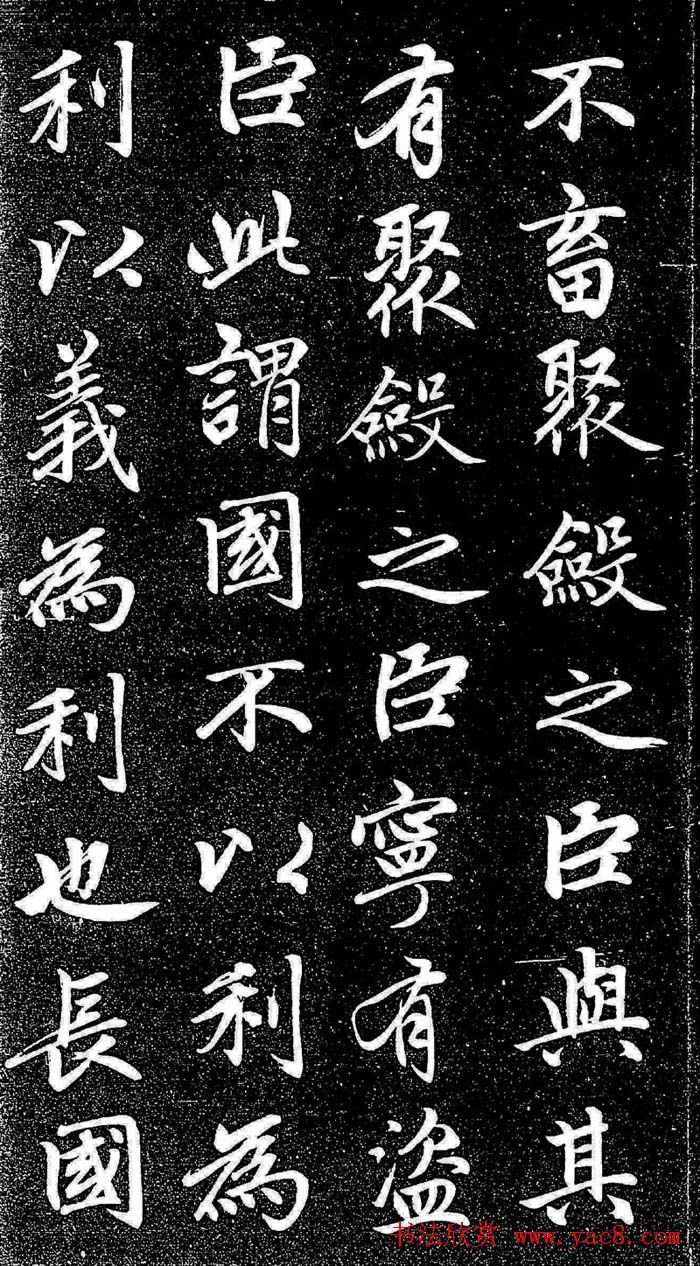 不畜聚斂之臣與其
有聚斂之臣寧有盜
臣此謂國不以利為
利以義為利也長國
书法欣赏 www.yac8.com